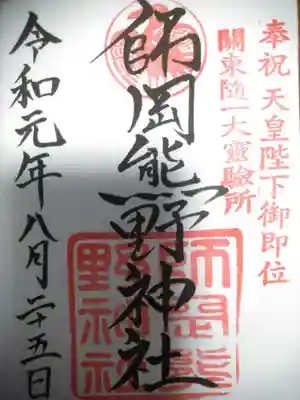 奉祝 天皇陛下御即位
關東随一大靈驗所
師岡熊野神社
師岡熊
野神社
令和元年八月二十五日